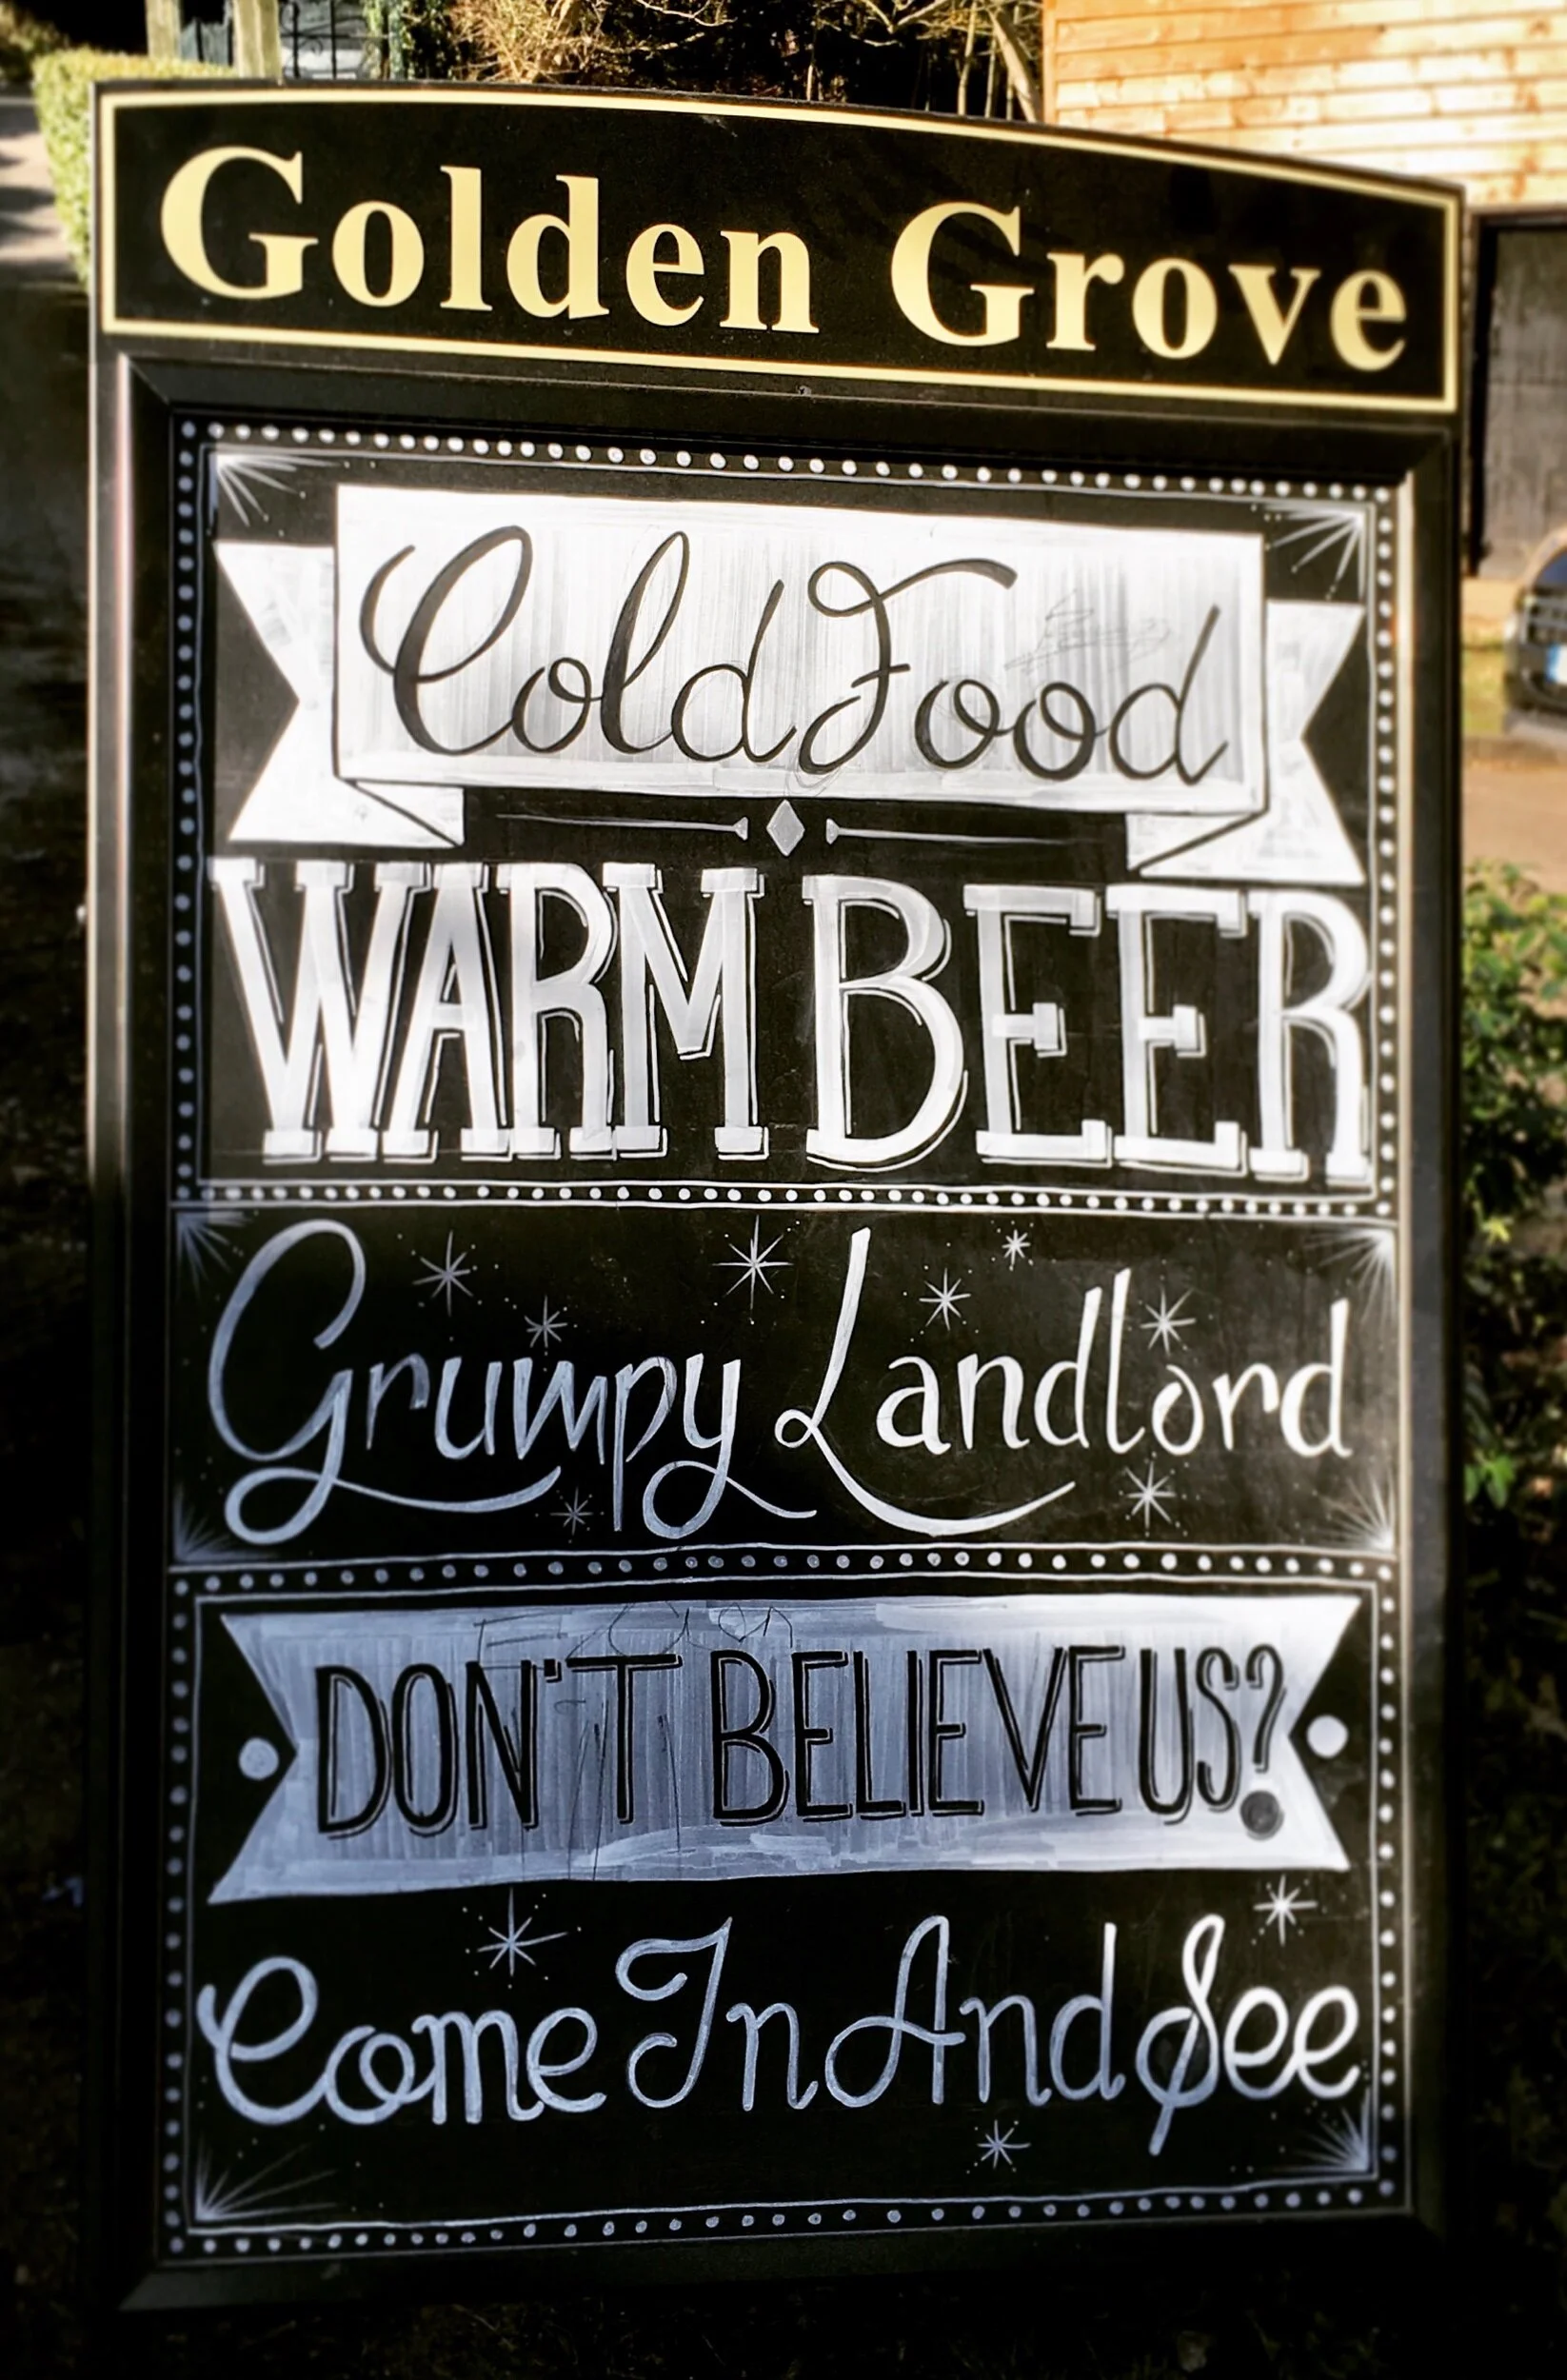 Golden Grove
Cold Food
WARM BEER
Grumpy Landlord
DON'T BELIEVE US?
Come In And See